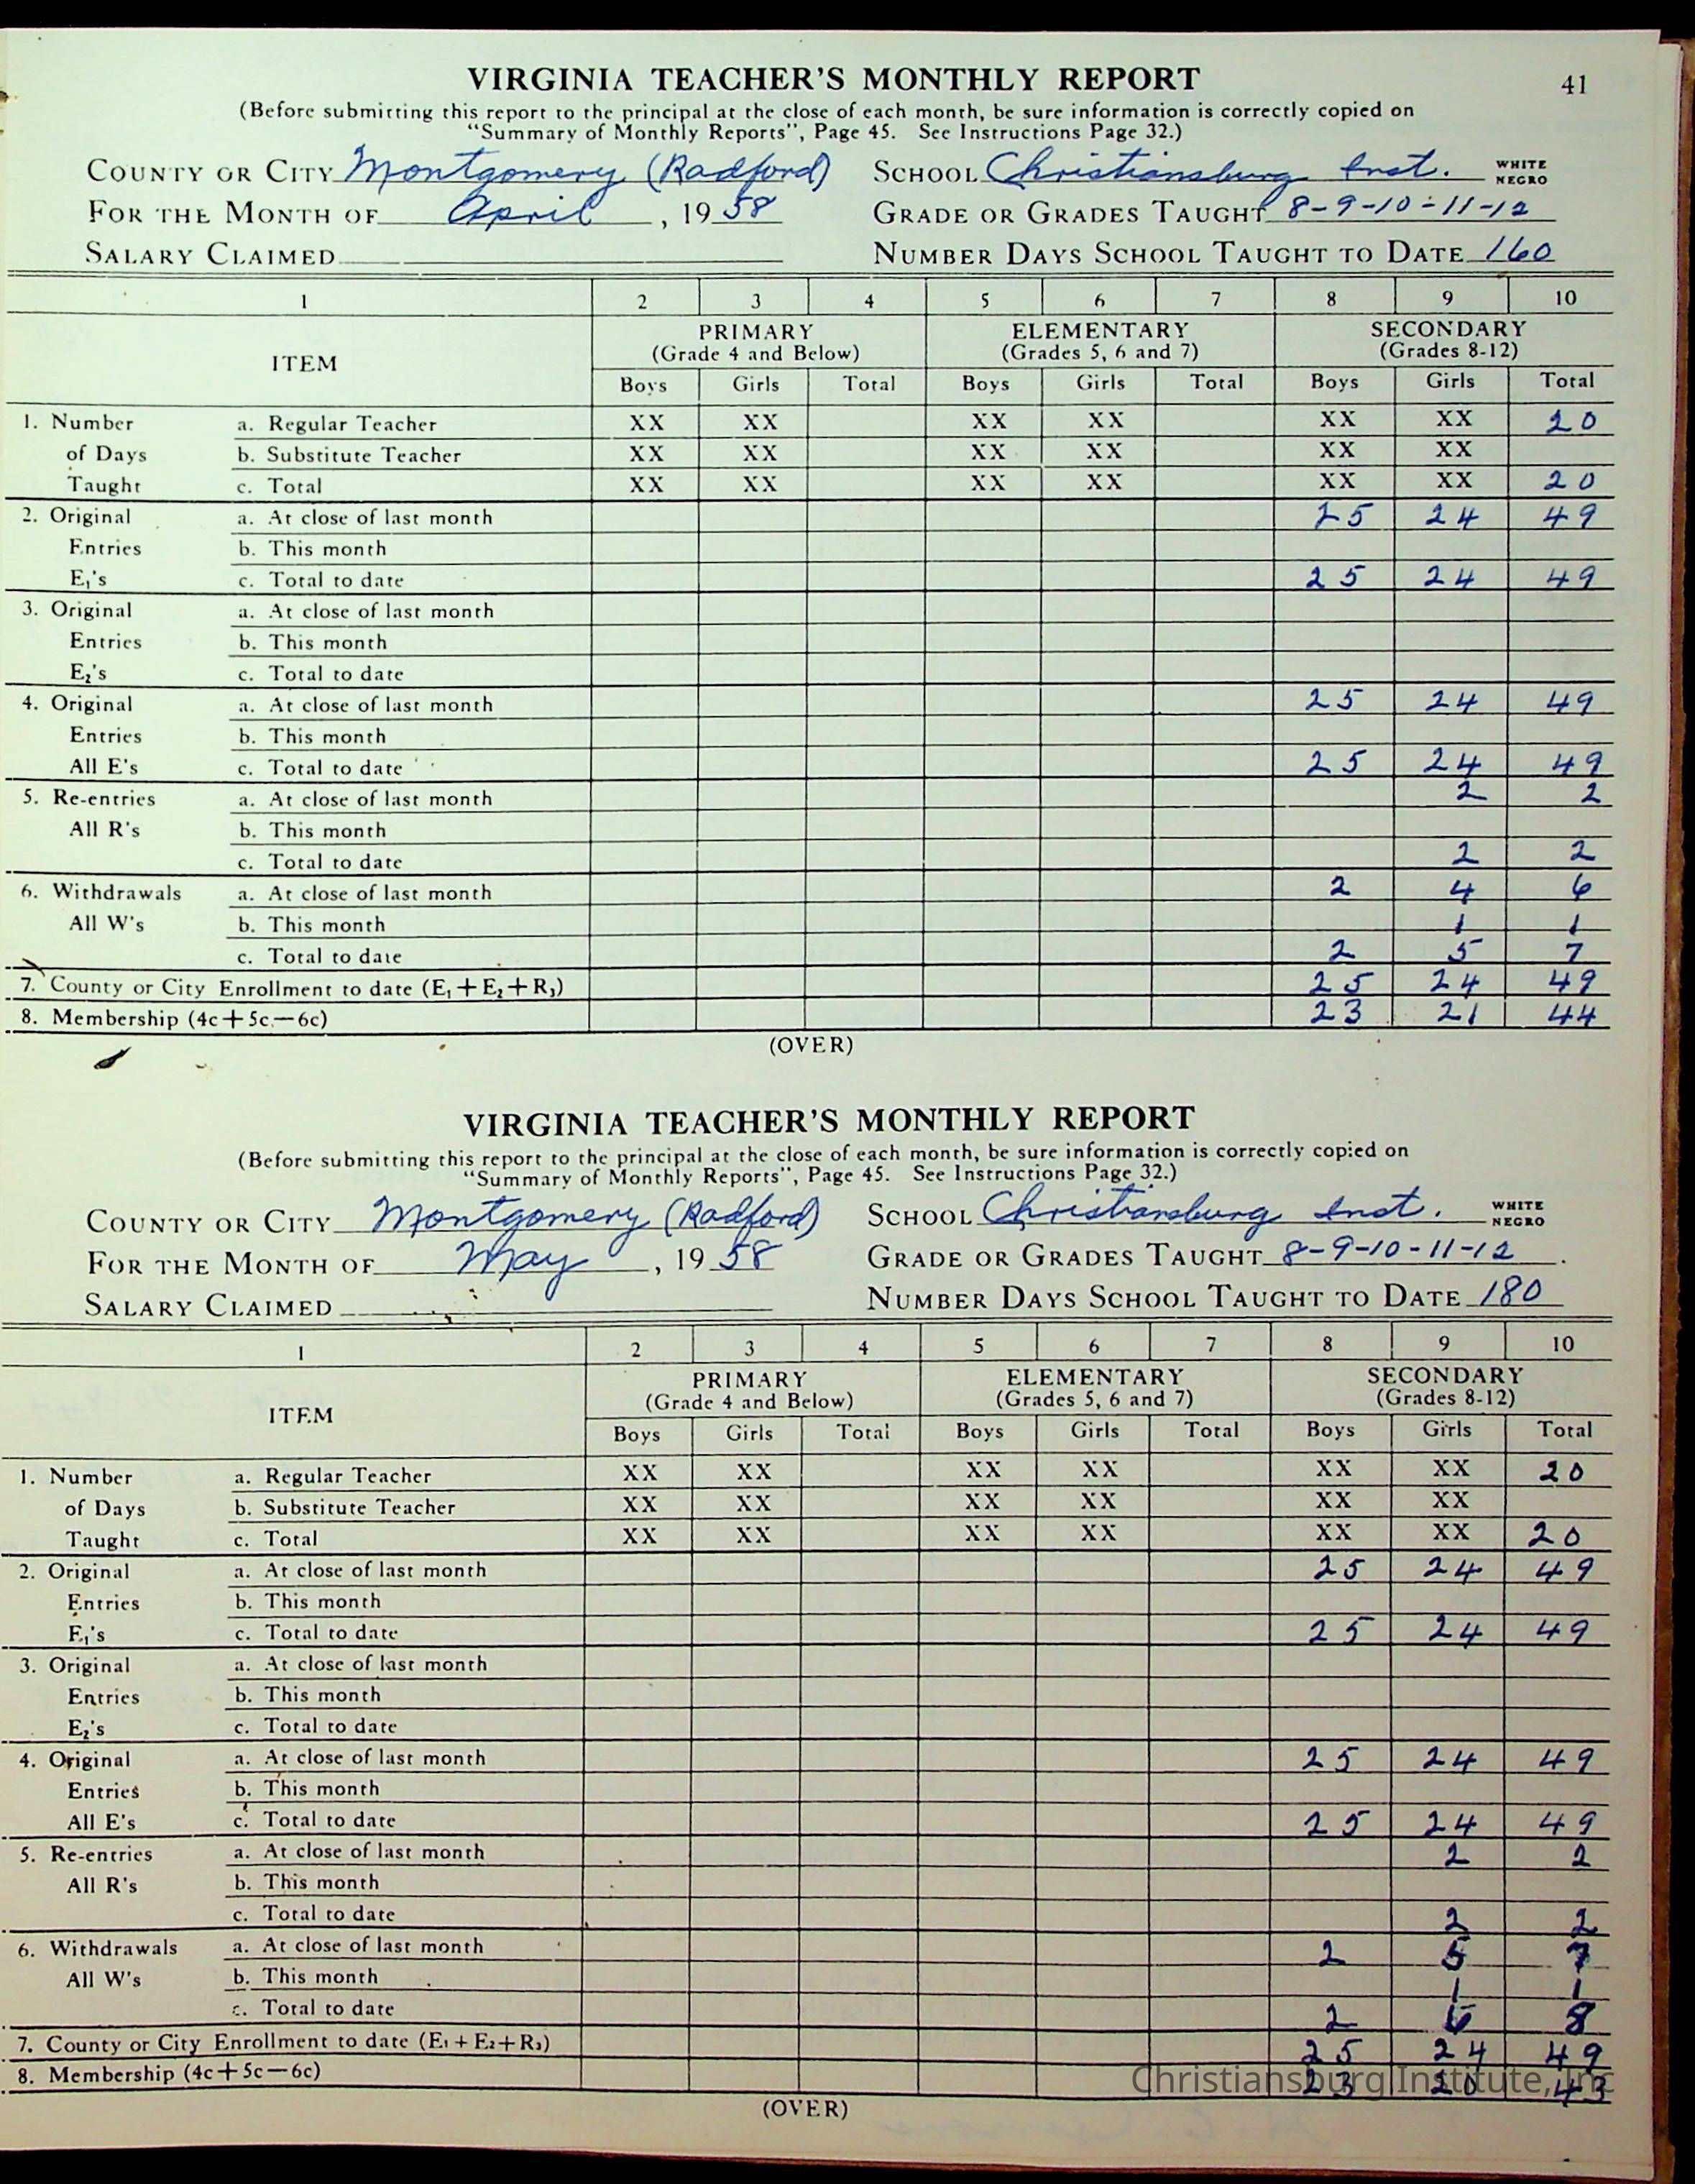 VIRGINIA TEACHER'S MONTHLY REPORT 41
(Before submitting this report to the principal at the close of each month, be sure information is correctly copied on
"Summary of Monthly Reports", Page 45. See Instructions Page 32.)
COUNTY OR CITY Montgomery (Radford) SCHOOL Christiansburg Inst. WHITE
NEGRO
FOR THE MONTH OF April, 19 58 GRADE OR GRADES TAUGHT 8-9-10-11-12
SALARY CLAIMED NUMBER DAYS SCHOOL TAUGHT TO DATE 160
1 2 3 4 5 6 7 8 9 10
ITEM PRIMARY ELEMENTARY SECONDARY
(Grade 4 and Below) (Grades 5, 6 and 7) (Grades 8-12)
Boys Girls Total Boys Girls Total Boys Girls Total
1. Number a. Regular Teacher XX XX XX XX XX XX 20
of Days b. Substitute Teacher XX XX XX XX XX XX
Taught c. Total XX XX XX XX XX XX 20
2. Original a. At close of last month 25 24 49
Entries b. This month
E₁'s c. Total to date 25 24 49
3. Original a. At close of last month
Entries b. This month
E₂'s c. Total to date
4. Original a. At close of last month 25 24 49
Entries b. This month
All E's c. Total to date 25 24 49
5. Re-entries a. At close of last month 2 2
All R's b. This month
c. Total to date 2 2
6. Withdrawals a. At close of last month 2 4 6
All W's b. This month 1 1
c. Total to date 2 5 7
7. County or City Enrollment to date (E₁+E₂+R₃) 25 24 49
8. Membership (4c+5c—6c) 23 21 44
(OVER)
VIRGINIA TEACHER'S MONTHLY REPORT
(Before submitting this report to the principal at the close of each month, be sure information is correctly copied on
"Summary of Monthly Reports", Page 45. See Instructions Page 32.)
COUNTY OR CITY Montgomery (Radford) SCHOOL Christiansburg Inst. WHITE
NEGRO
FOR THE MONTH OF May, 19 58 GRADE OR GRADES TAUGHT 8-9-10-11-12
SALARY CLAIMED NUMBER DAYS SCHOOL TAUGHT TO DATE 180
1 2 3 4 5 6 7 8 9 10
ITEM PRIMARY ELEMENTARY SECONDARY
(Grade 4 and Below) (Grades 5, 6 and 7) (Grades 8-12)
Boys Girls Total Boys Girls Total Boys Girls Total
1. Number a. Regular Teacher XX XX XX XX XX XX 20
of Days b. Substitute Teacher XX XX XX XX XX XX
Taught c. Total XX XX XX XX XX XX 20
2. Original a. At close of last month 25 24 49
Entries b. This month
E₁'s c. Total to date 25 24 49
3. Original a. At close of last month
Entries b. This month
E₂'s c. Total to date
4. Original a. At close of last month 25 24 49
Entries b. This month
All E's c. Total to date 25 24 49
5. Re-entries a. At close of last month 2 2
All R's b. This month
c. Total to date 2 2
6. Withdrawals a. At close of last month 2 5 7
All W's b. This month 1 1
c. Total to date 2 6 8
7. County or City Enrollment to date (E₁+E₂+R₃) 25 24 49
8. Membership (4c+5c—6c) 23 20 43
Christiansburg Institute, Inc
(OVER)